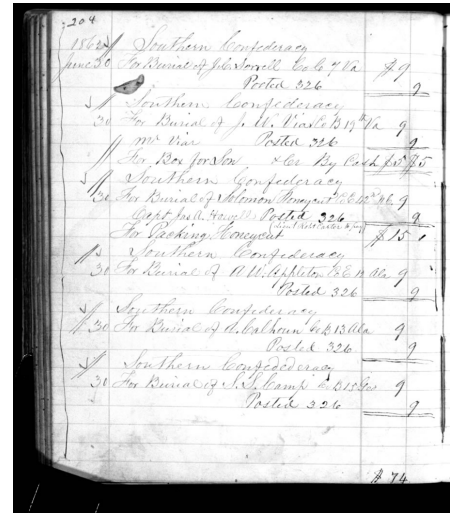 204
1862 Southern Confederacy
June 30 For Burial of J.C. Sorrell Co G 7 Va $9
Posted 326 9
Southern Confederacy
30 For Burial of J. W. Viar Co B 19th Va 9
Posted 326 9
Mr Viar
For Box for Son & Cr By Cash $5 $5
Southern Confederacy
30 For Burial of Solomon Honeycut N.C. 9
Capt Jas A. Howell Posted 326 9
For Packing Honeycut $15
Southern Confederacy
30 For Burial of A W Appleton Co E 10 Ala 9
Posted 326 9
Southern Confederacy
30 For Burial of A. Calhoun Co B 13 Ala 9
Posted 326 9
Southern Confederacy
30 For Burial of S. S. Camp Co D 15 Geo 9
Posted 326 9
$ 74